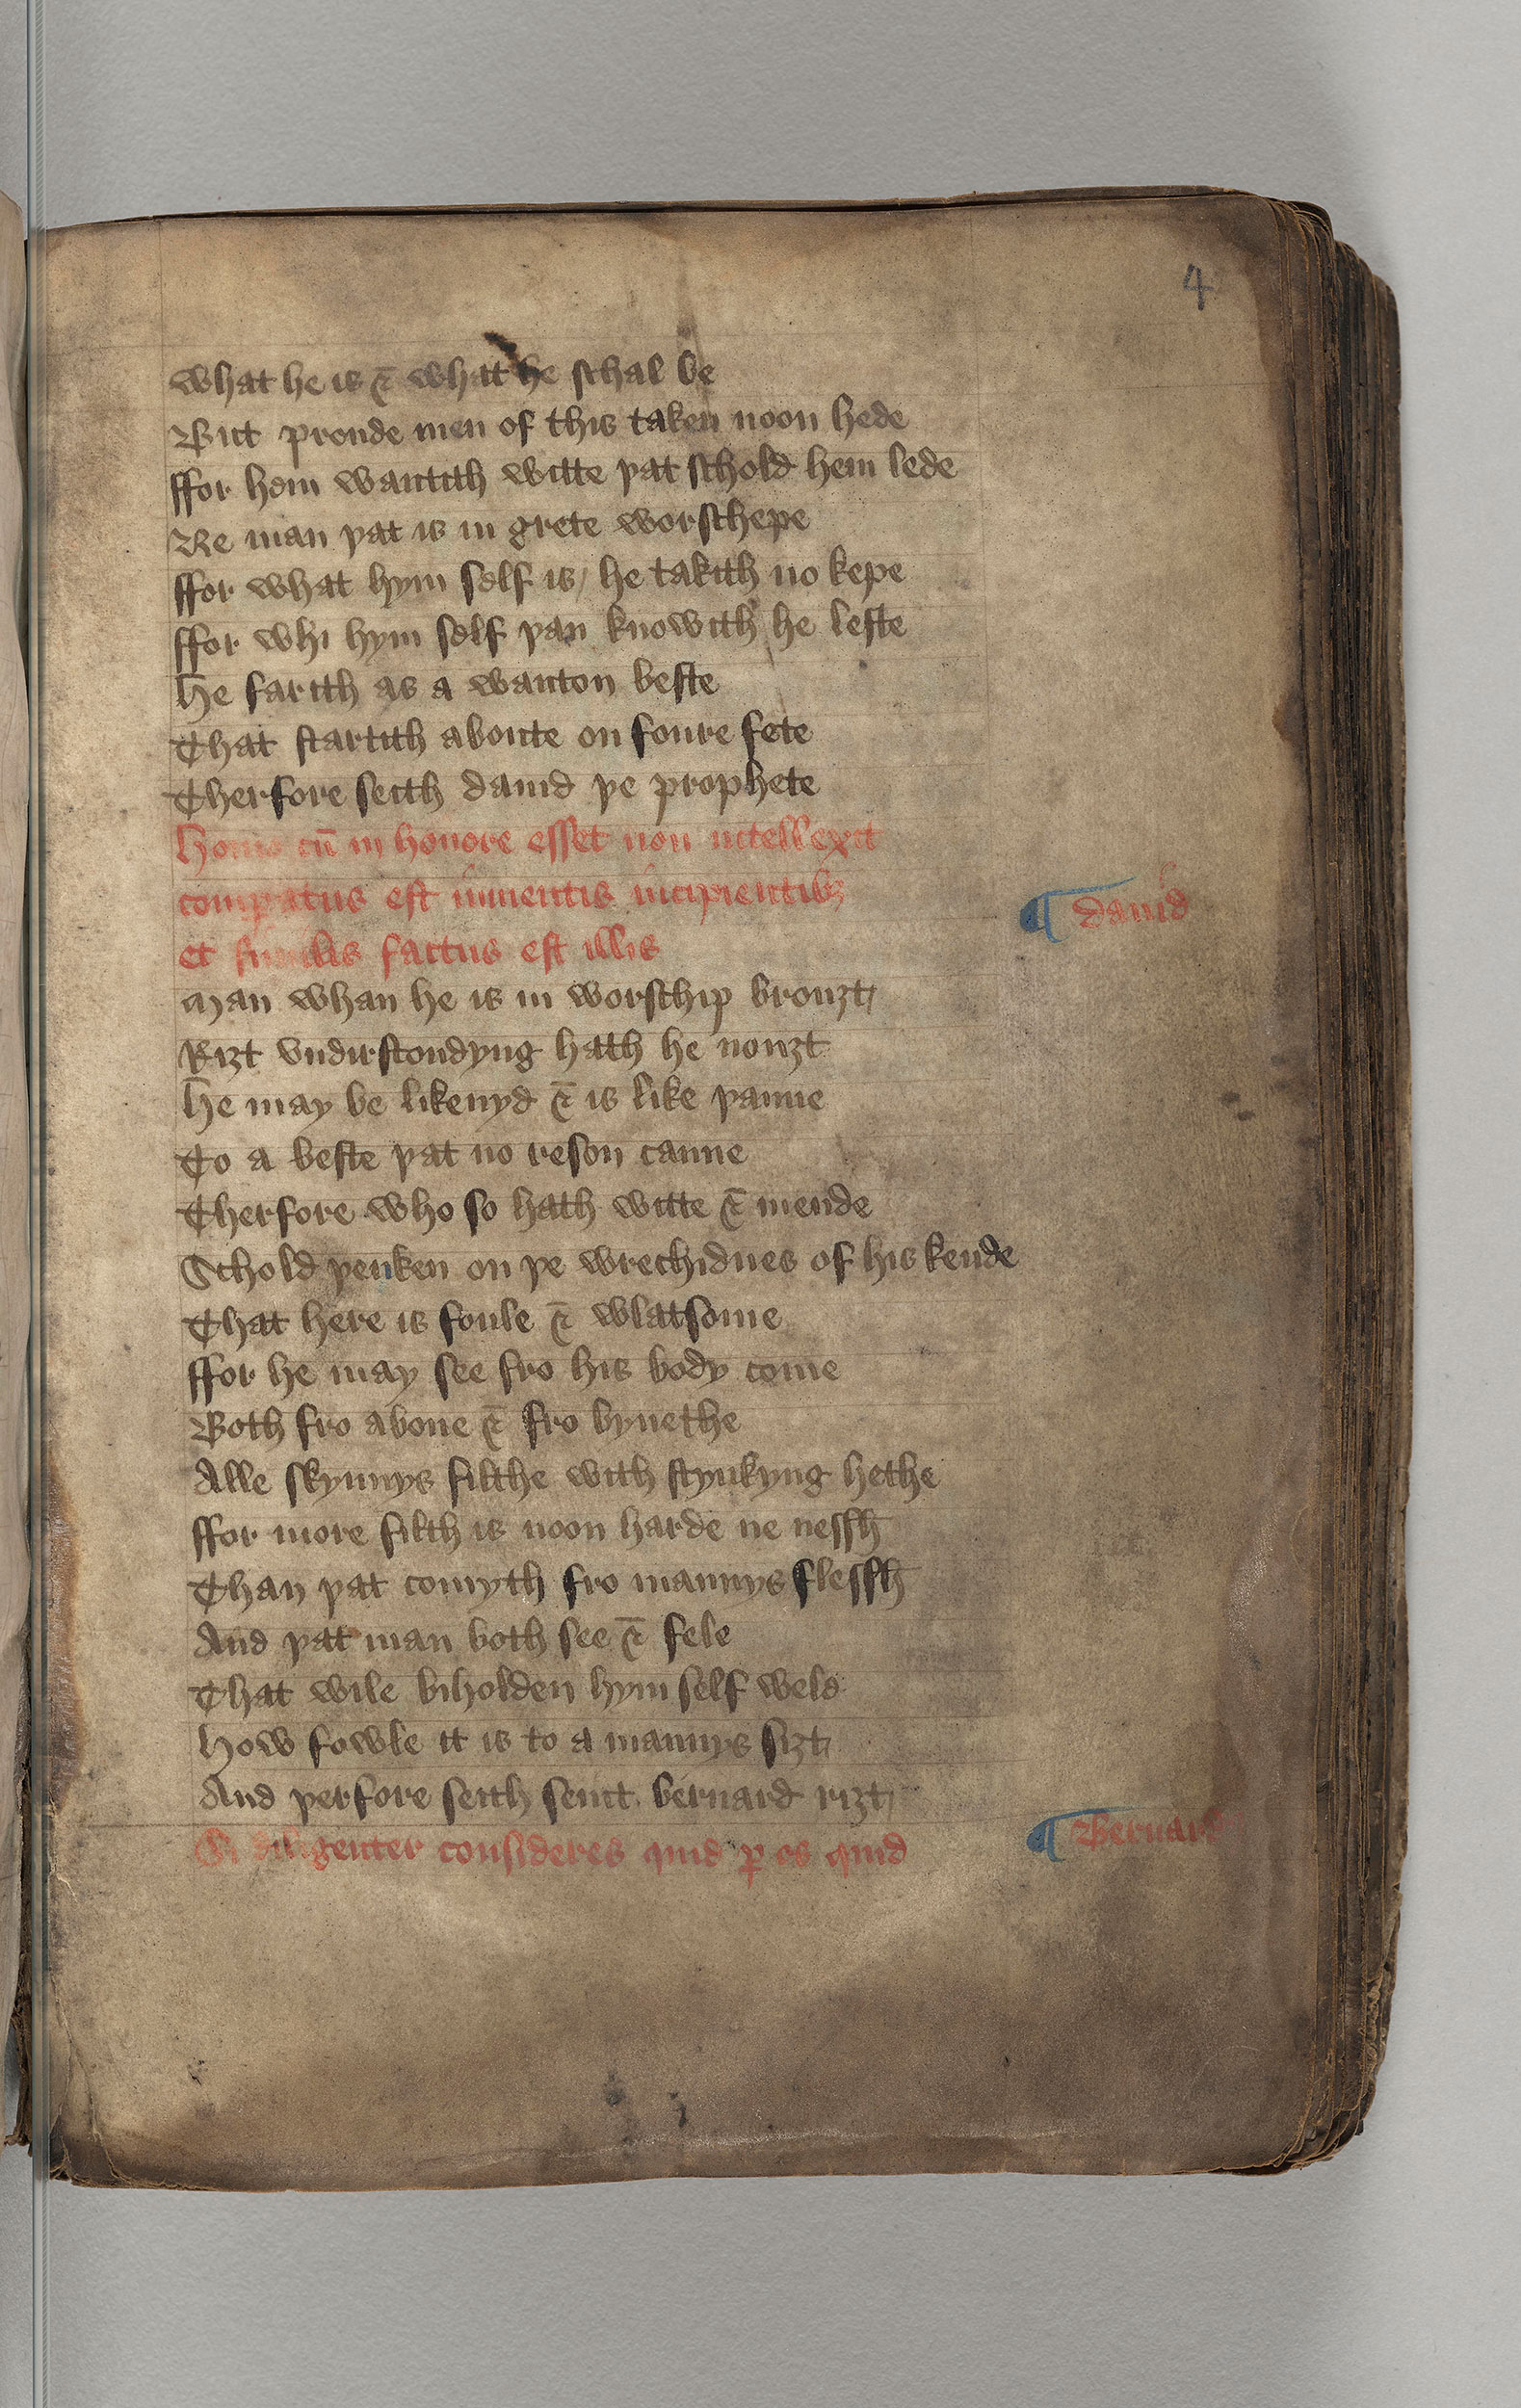 4
What he is & what he schal be
But proude men of this taken noon hede
ffor hem wantith witte þat schold hem lede
Ne man þat is in grete worschepe
ffor what hym self is / he takith no kepe
ffor whi hym self þan knowith he leste
He farith as a wanton beste
That startith aboute on foure fete
Therfore seith dauid þe prophete
Homo cū in honore esset non intellexit
compatus est iumentis incipientibꝫ
et similis factus est illis
¶ dauid
Man whan he is in worschip brouȝt /
Riȝt vndirstondyng hath he nouȝt
He may be likenyd & is like þanne
To a beste þat no reson canne
Therfore who so hath witte & mende
Schold þenken on þe wrechidnes of his kende
That here is foule & wlatsome
ffor he may see fro his body come
Both fro aboue & fro bynethe
Alle skynnys filthe with stynkyng hethe
ffor more filth is noon harde ne nessh
Than þat comyth fro mannys flessh
And þat man both see & fele
That wile biholden hym self wele
How fowle it is to a mannys siȝt /
And þerfore seith seint bernard riȝt /
Si diligenter consideres quid ꝑ os quid
¶ Bernard